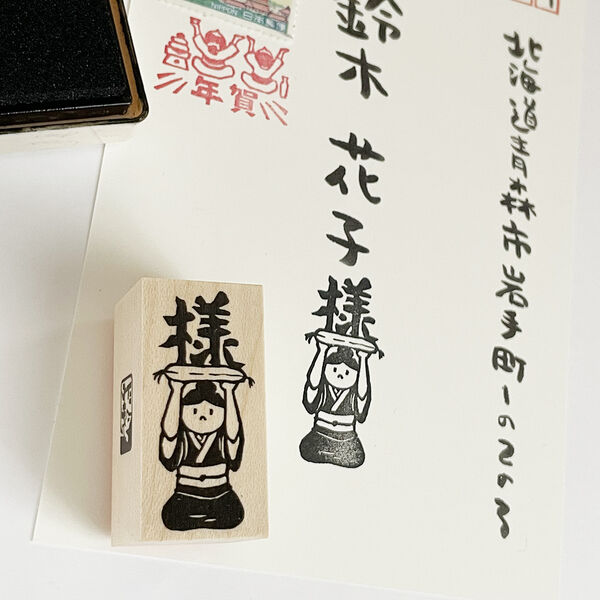 北海道青森市岩手町一の2の3
鈴木 花子様
NIPPON 日本郵便
年賀
様